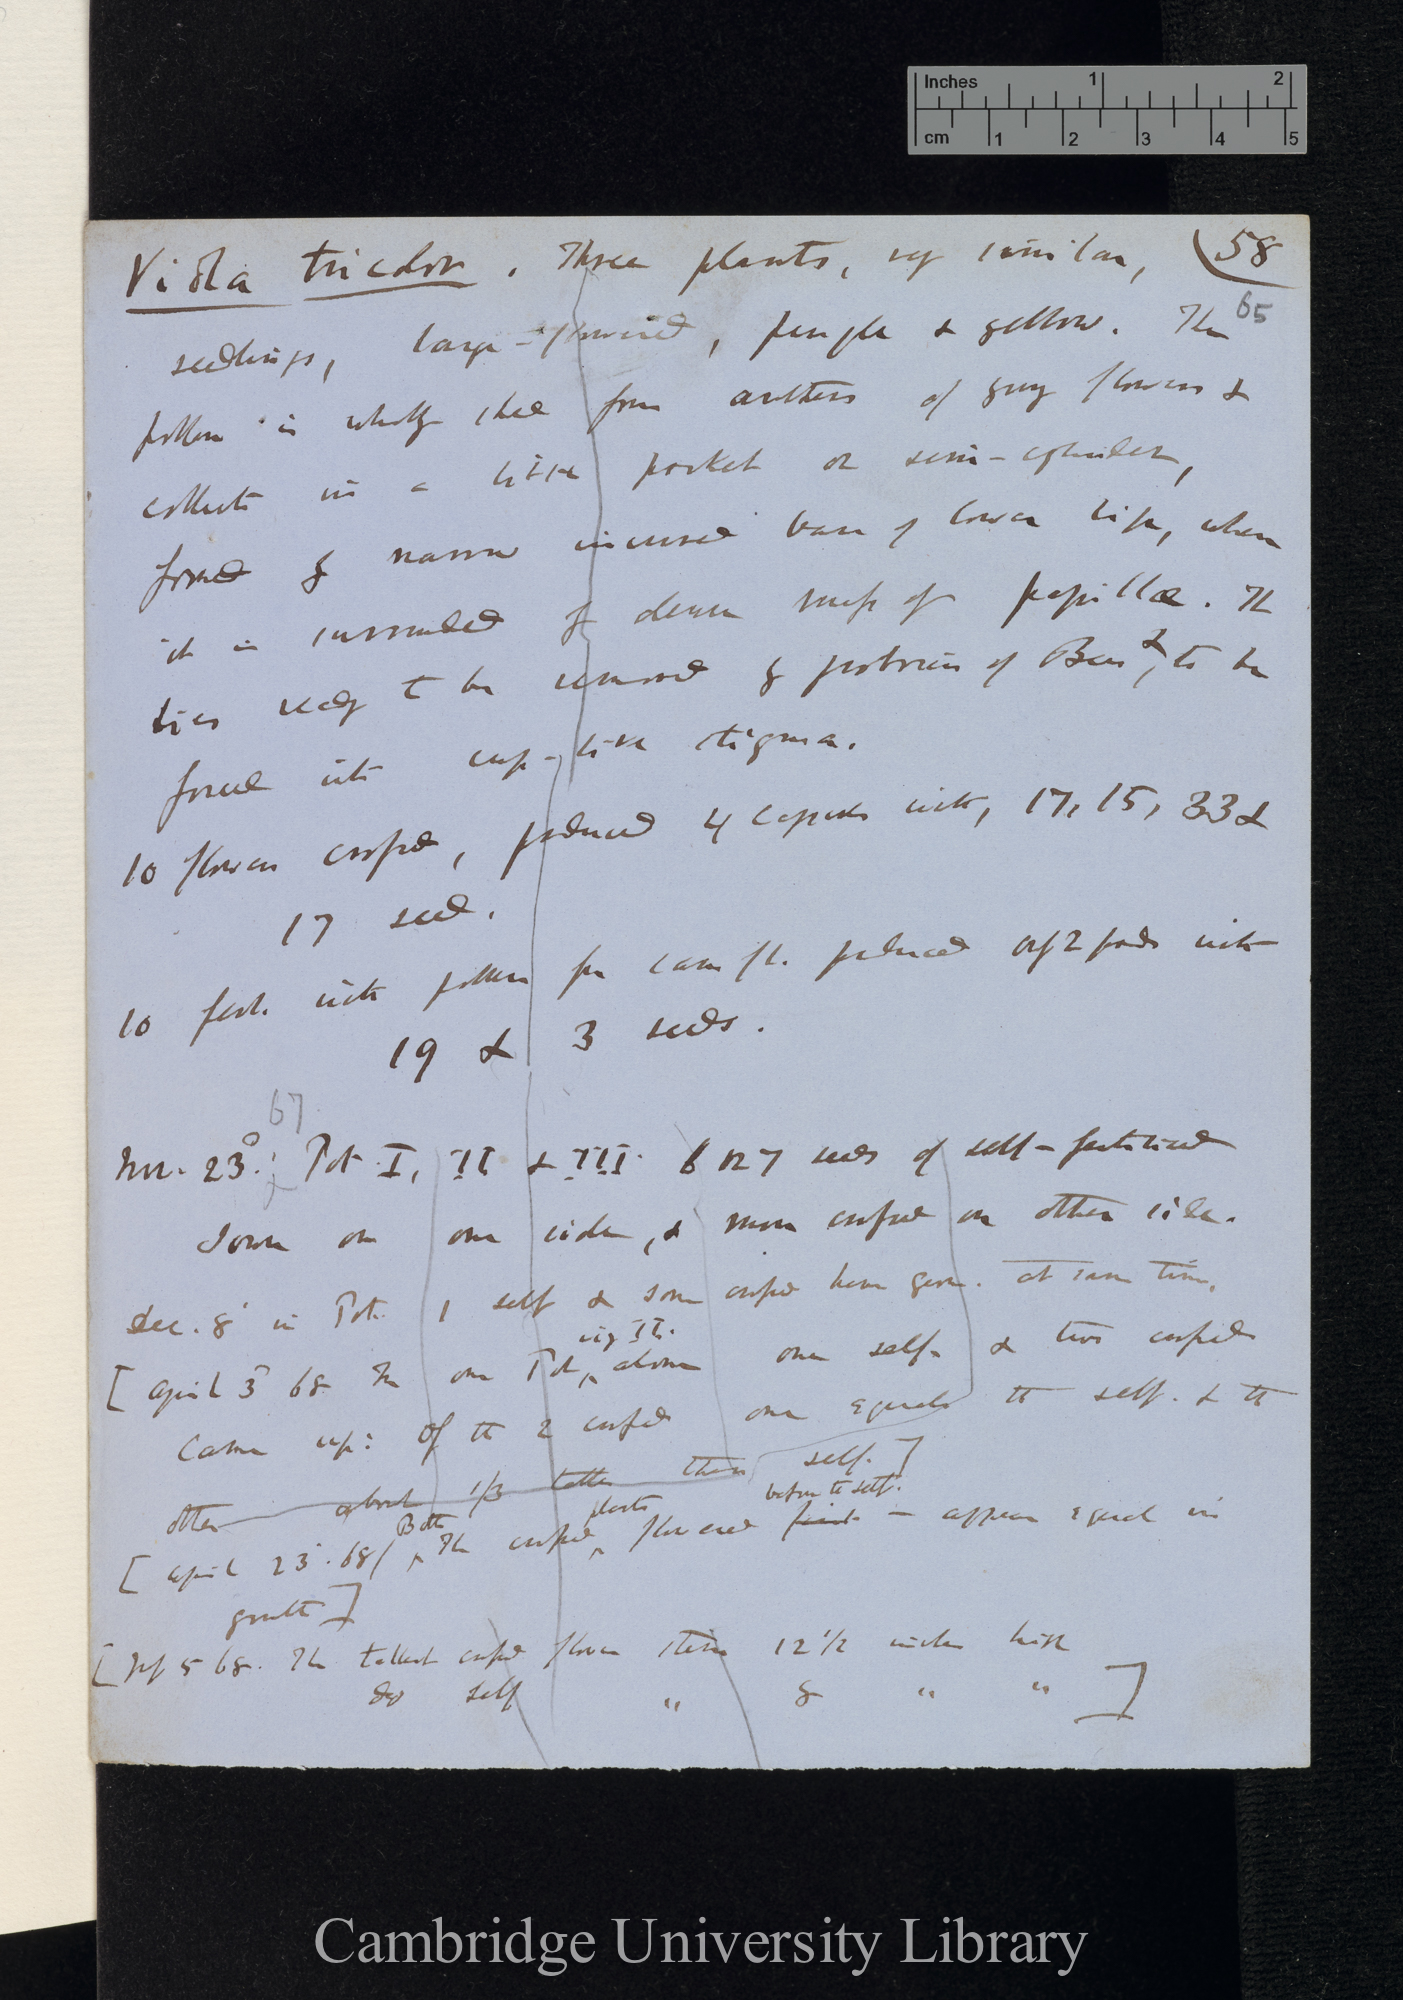 Inches 1 2
cm 1 2 3 4 5
Viola tricolor. Three plants, very similar, (58
65
seedlings, large-flowered, purple & yellow. The
pollen is wholly shed from anthers of young flowers &
collects in a little pocket or semi-cylinder,
formed by narrow incurved base of lower lip, where
it is surrounded by dense mass of papillæ. It
lies ready to be removed by proboscis of Bees &, to be
forced into cup-like stigma.
10 flowers crossed, produced 4 capsules with, 17, 15, 33 &
17 seed.
10 fert. with pollen from same fl. produced only 2 pods with
19 & 3 seeds.
67
Nov. 23d: Pot I, II & III. 6 or 7 seeds of self-fertilised
sown on one side, & more crossed on other side.
Dec. 8' in Pot. 1 self & some crossed have germ. at same time.
viz II.
[April 3d 68 In one Pot, alone one self. & two crossed
came up: of the 2 crossed one equals the self. & the
other about 1/3 taller than self.]
Both plants before the self.
[April 23d. 68/ The crossed flowered first — appear equal in
growth]
[May 5 68. The tallest crossed flower stem 12 1/2 inches high
do self " 8 " " ]
Cambridge University Library